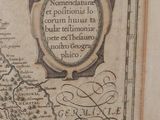 Nomenclaturæ
et positionis lo
corum huius ta
bulæ testimoniu,
pete ex Thesauro
nostro Geogra
phico.
GERMANIÆ